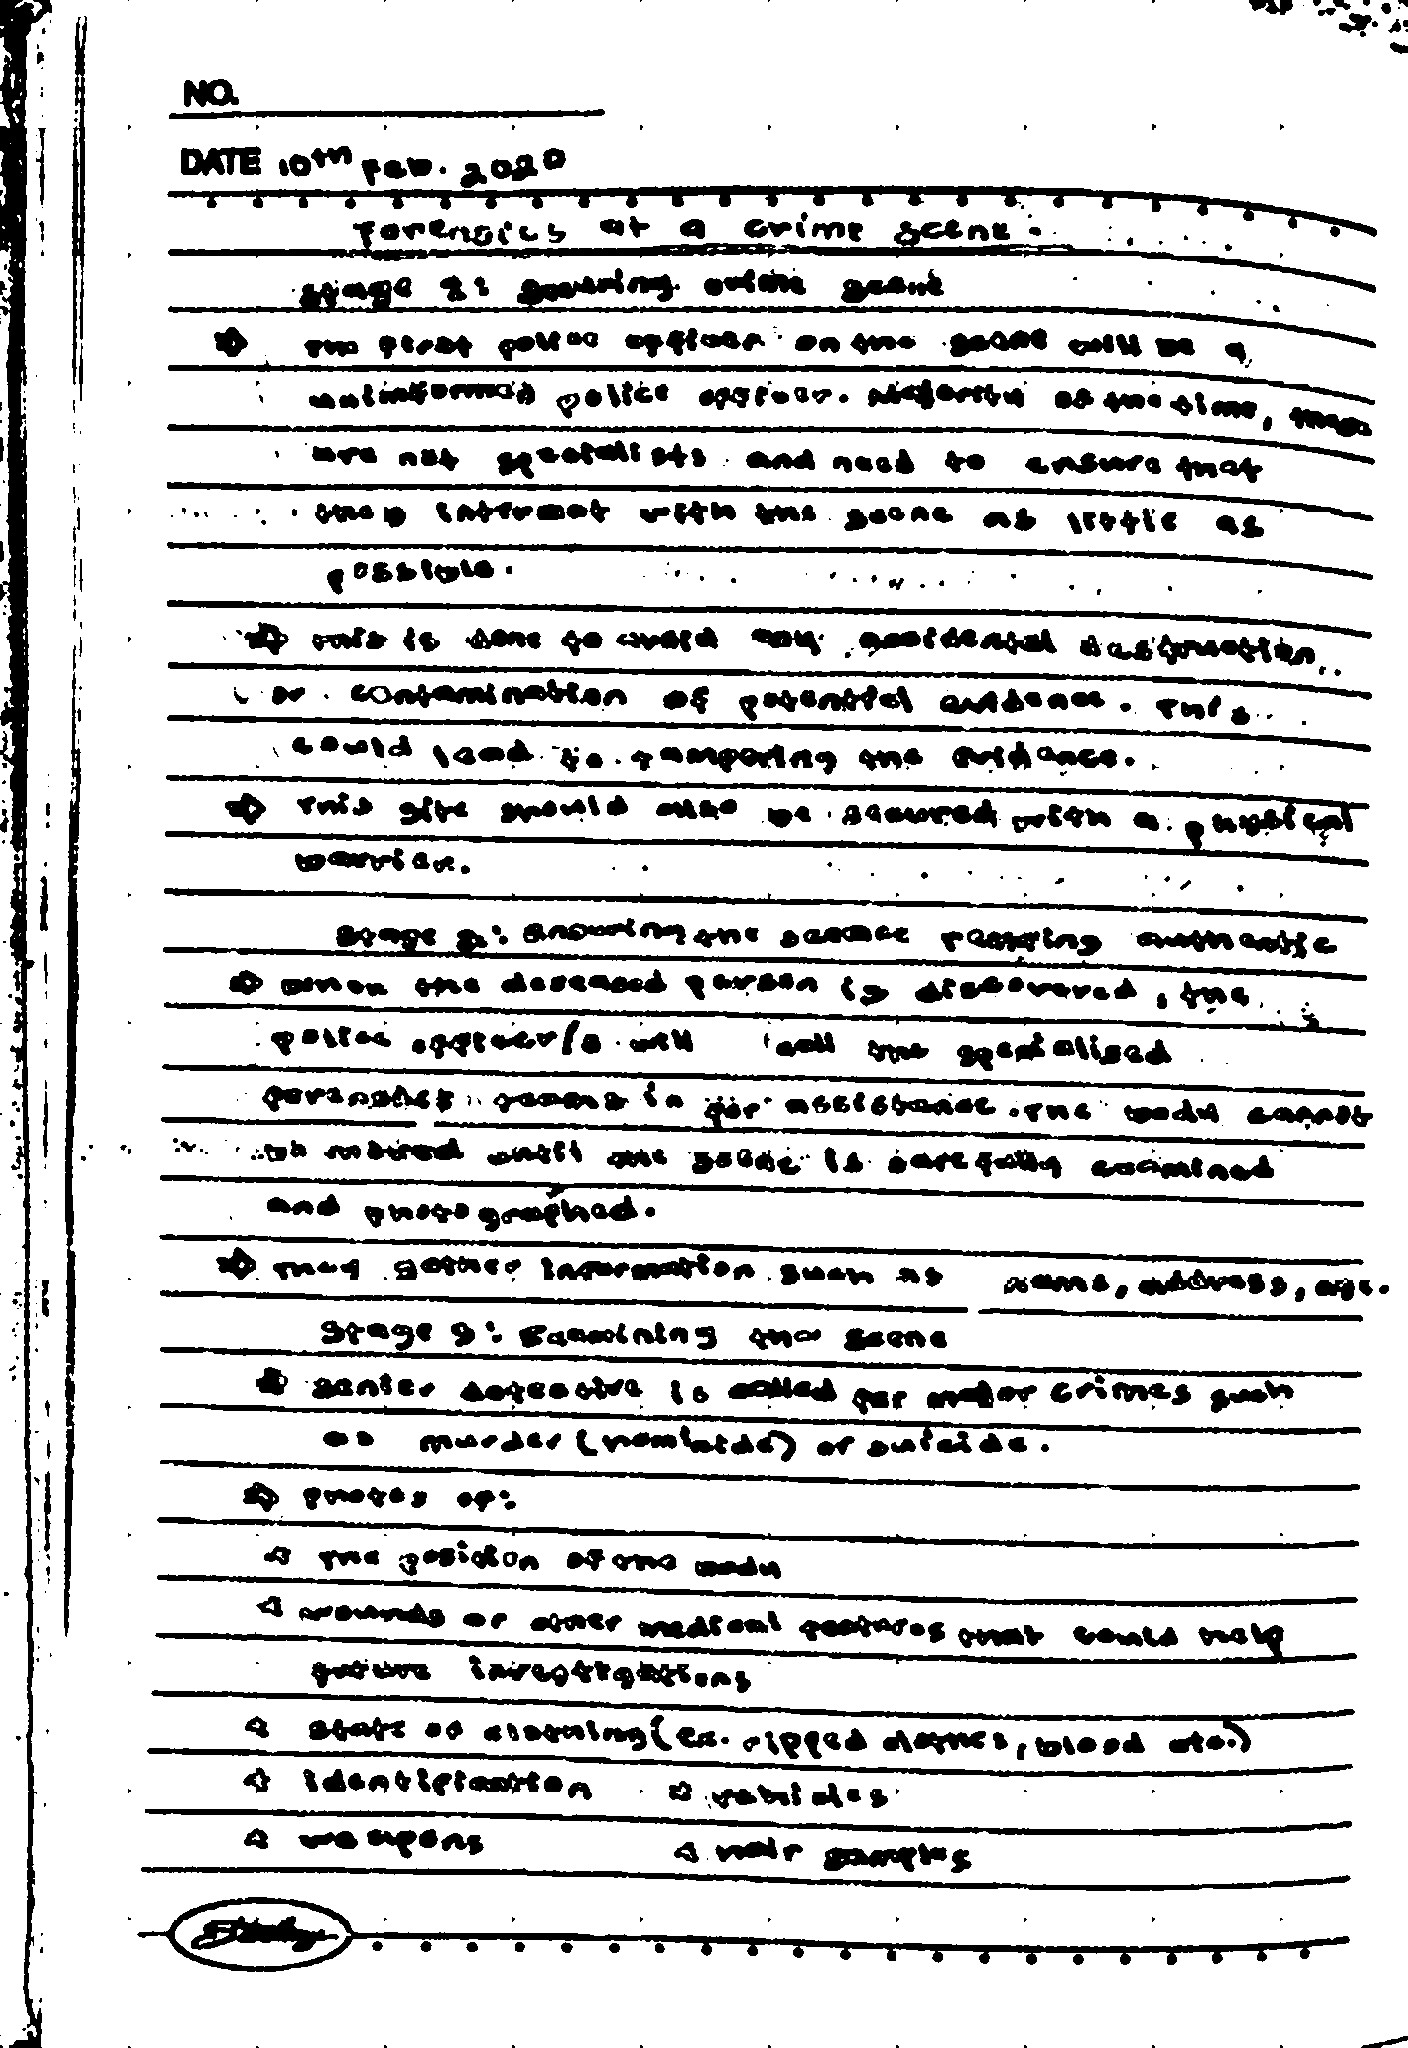 NO.
DATE 10th Feb. 2020
Forensics at a crime scene.
Stage 1: Securing crime scene
The first police officer on the scene will be a
uninformed police officer. Majority of the time, these
are not specialists and need to ensure that
they interract with the scene as little as
possible.
This is done to avoid any accidental destruction
or contamination of potential evidence. This
could lead to tampering the evidence.
This site should also be secured with a physical
barrier.
Stage 2: Ensuring the science remains authentic
When the deseased person is discovered, the
police officer/s will call the specialised
forensics teams in for assistance. The body cannot
be moved until the scene is carefully examined
and photographed.
They gather information such as name, address, age.
Stage 3: Examining the scene
Senior detective is called for major crimes such
as murder (homicide) or suicide.
Photos of:
The position of the body
wounds or other medical features that could help
future investigations
state of clothing (ex. ripped clothes, blood etc.)
identification vehicles
weapons hair samples